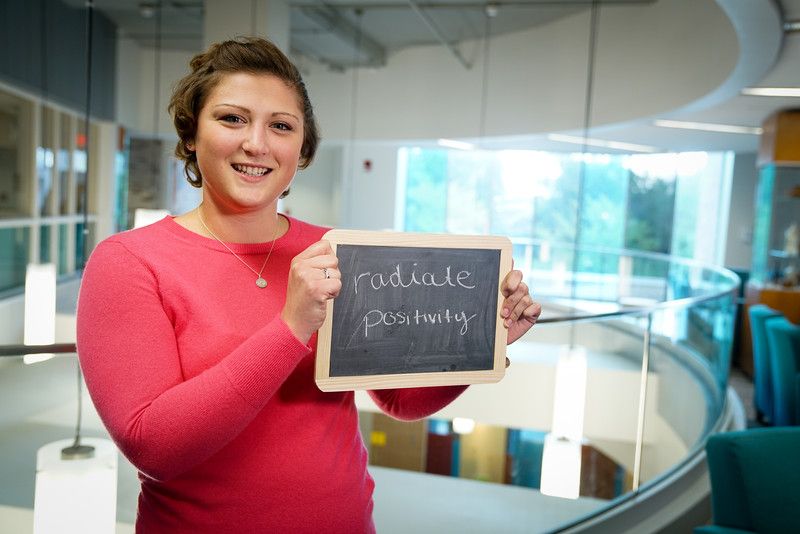 radiate
positivity